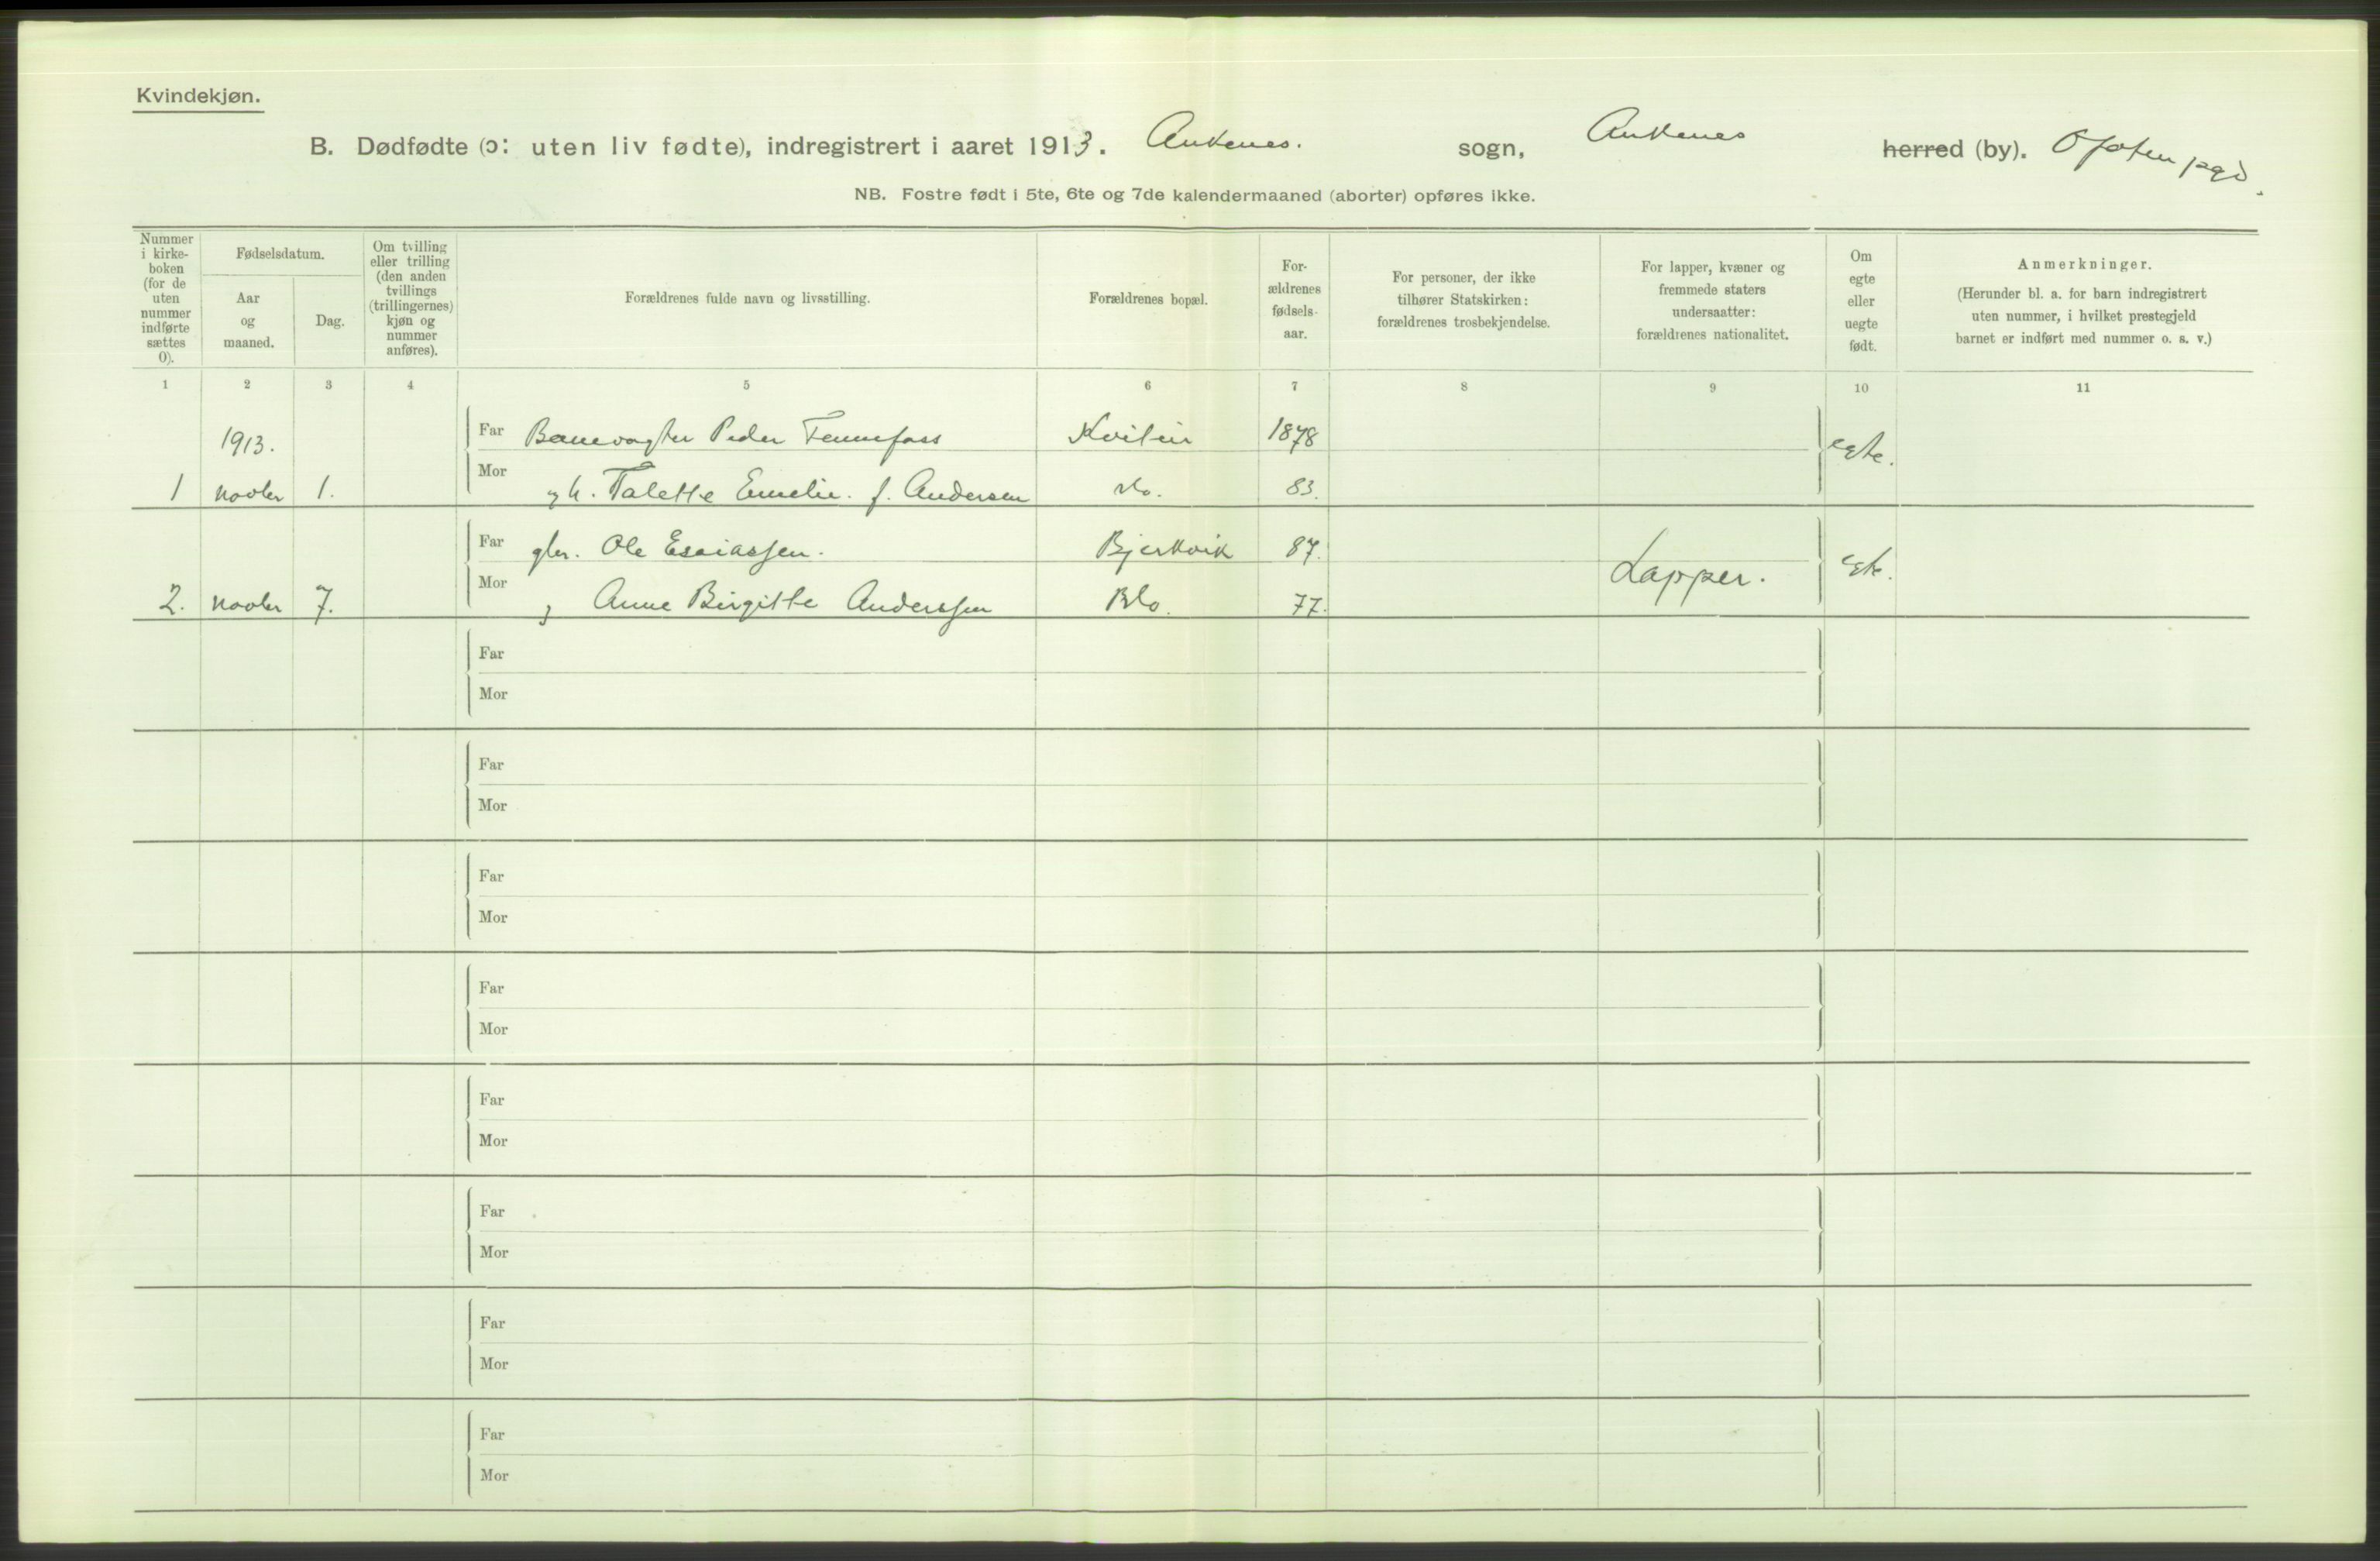 Kvindekjøn.
B. Dødfødte (ɔ: uten liv fødte), indregistrert i aaret 1913. Ankenes. sogn, Ankenes herred (by). Ofoten pgd.
NB. Fostre født i 5te, 6te og 7de kalendermaaned (aborter) opføres ikke.
Nummer i kirke- boken (for de uten nummer indførte sættes 0).
Fødselsdatum.
Aar og maaned.
Dag.
Om tvilling eller trilling (den anden tvillings (trillingernes) kjøn og nummer anføres).
Forældrenes fulde navn og livsstilling.
Forældrenes bopæl.
For- ældrenes fødsels- aar.
For personer, der ikke tilhører Statskirken: forældrenes trosbekjendelse.
For lapper, kvæner og fremmede staters undersaatter: forældrenes nationalitet.
Om egte eller uegte født.
Anmerkninger.
(Herunder bl. a. for barn indregistrert uten nummer, i hvilket prestegjeld barnet er indført med nummer o. s. v.)
1 2 3 4 5 6 7 8 9 10 11
1913. Far Banevogter Peder Tennefoss 1878 egte.
1 novbr 1. Mor Talette Emelie. f. Andersen do. 83.
Far gbr. Ole Esaiassen. Bjerkvik 87. Lapper. egte.
2. novbr 7. Mor Anne Birgitte Anderssen 77.
Far
Mor
Far
Mor
Far
Mor
Far
Mor
Far
Mor
Far
Mor
Far
Mor
Far
Mor